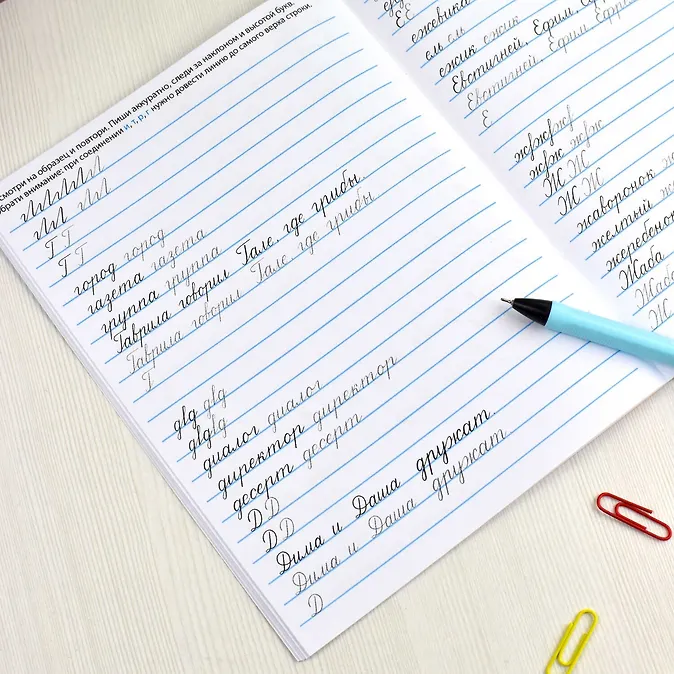 смотри на образец и повтори. Пиши аккуратно, следи за наклоном и высотой букв.
обрати внимание: при соединении и, т, р, г нужно довести линию до самого верха строки.
Г Г
Г Г
город город
газета газета
группа группа
Гаврила говорил Гале, где грибы.
Гаврила говорил Гале, где грибы.
Г
д д д д
д д д д
диалог диалог
директор директор
десерт десерт
Д Д
Д Д
Дима и Даша дружат.
Дима и Даша дружат.
Д
ЕЕ
ежевика
ем ем
ежик ежик
Евстигней, Ефим, Ефр
Евстигней, Ефим, Ефрем
Е
жжж
жж жж
Ж Ж
Ж Ж
жаворонок
желтый
жеребенок
Жаба
Жаба
Ж